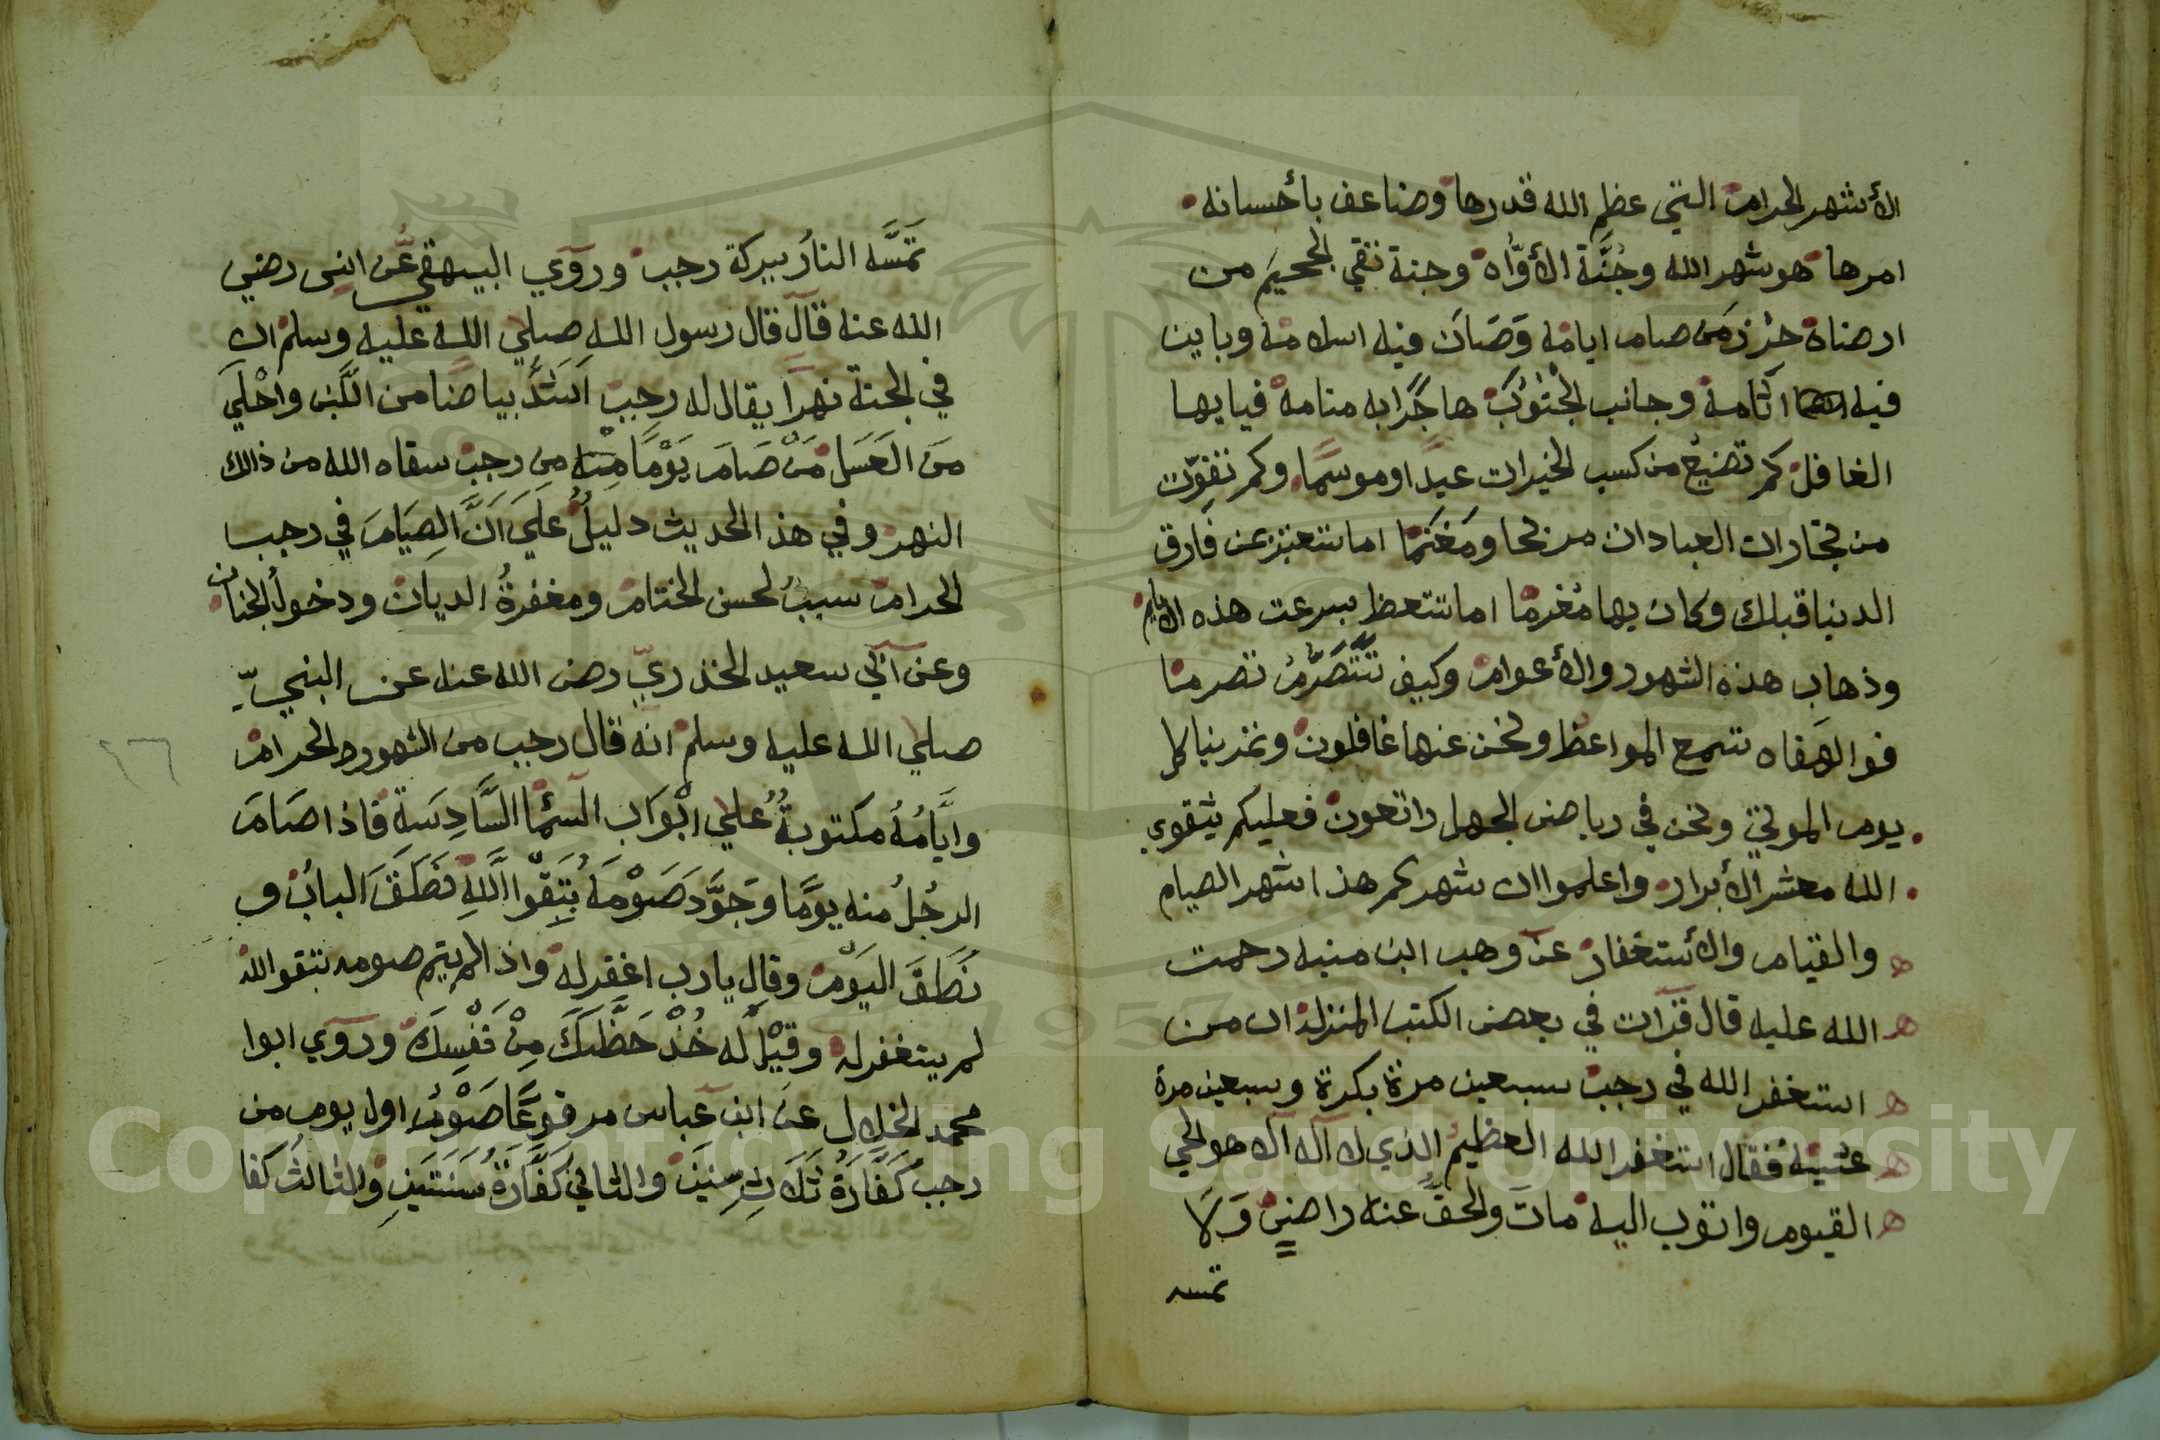 الأشهر الحرام التي عظم الله قدرها وضاعف بأحسانه
امرها هو شهر الله وجُنَّة الأوَّاه وجنة تقي الجحيم من
ارضاه حرز من صام ايامه وَصَانَ فيه اسلامه وباين
فيه اثامه وجانب الجنوب هاجرا به منامه فيا يها
الغافل كم تضيع من كسب الخيرات عيدا وموسما وكم تفوّت
من تجارات العبادان مربحا ومَغنَمًا اما تتعتبر بمن فارق
الدنيا قبلك وكان بها مُغرمًا اما تتعظ بسرعت هذه الايام
وذهاب هذه الشهور والأعوام وكيف تَتَصَرَّمُ تصرما
فوالهفاه نسمع المواعظ ونحن عنها غافلون وتمز بنا كل
يوم الموتي ونحن في رياض الجهل راتعون فعليكم بتقوي
الله معشر الأبرار واعلموا ان شهركم هذا شهر الصيام
والقيام والأستغفار عن وهب ابن منبه رحمت
الله عليه قال قرات في بعض الكتب المنزلة ان من
استغفر الله في رجب سبعين مرة بكرة وسبعين مرة
عشية فقال استغفر الله العظيم الذي لا اله الا هو الحي
القيوم واتوب اليه مات والحق عنه راضي وَلَا
تمسه
تَمَسَّه النارُ ببركة رجب وروي البيهقي عن انس رضي
الله عنه قال قال رسول الله صلي الله عليه وسلم ان
في الجنة نهرا يقال له رجب اَشَدُّ بياضا من اللَّبن واَحْلَي
مَنَ العَسَل مَنْ صَامَ يَوْمًا منه من رجب سقاه الله من ذالك
النهر وفي هذ الحديث دليلٌ عَلَي اَنَّ الصِيَامَ في رجب
الحرام سببُ لحسن الختام ومغفرةُ الديان ودخولُ الجنان
وعن ابي سعيد الخذريّ رضى الله عنه عن النبيّ
صلي الله عليه وسلم انه قال رجب من الشهور الحرام
وايَّامُهُ مكتوبةٌ علي ابْوَاب السَّما السَّادِسَةِ فاذا صَامَ
الرجُلُ منه يومًا وجَوَّدَ صَوْمَهُ بَتِقْوا اللَّهِ نَطَقَ البابُ و
نَطَقَ اليَوْم وقال يا رب اغفر له واذا لم يتم صومه بتقوا الله
لم يستغفر له وقيل له خُذْ حَظَّكَ مِنْ نَفْسِكَ وروي ابوا
محمد الخلال عن ابن عباس مرفوعًا صَوْمُ اول يوم من
رجب كَفَّارَةُ ثَلَاثِ سِنِينَ والثاني كَفَّارَةُ سَنَتَينِ والثالث كفا
٢٦
Copyright © King Saud University
1957